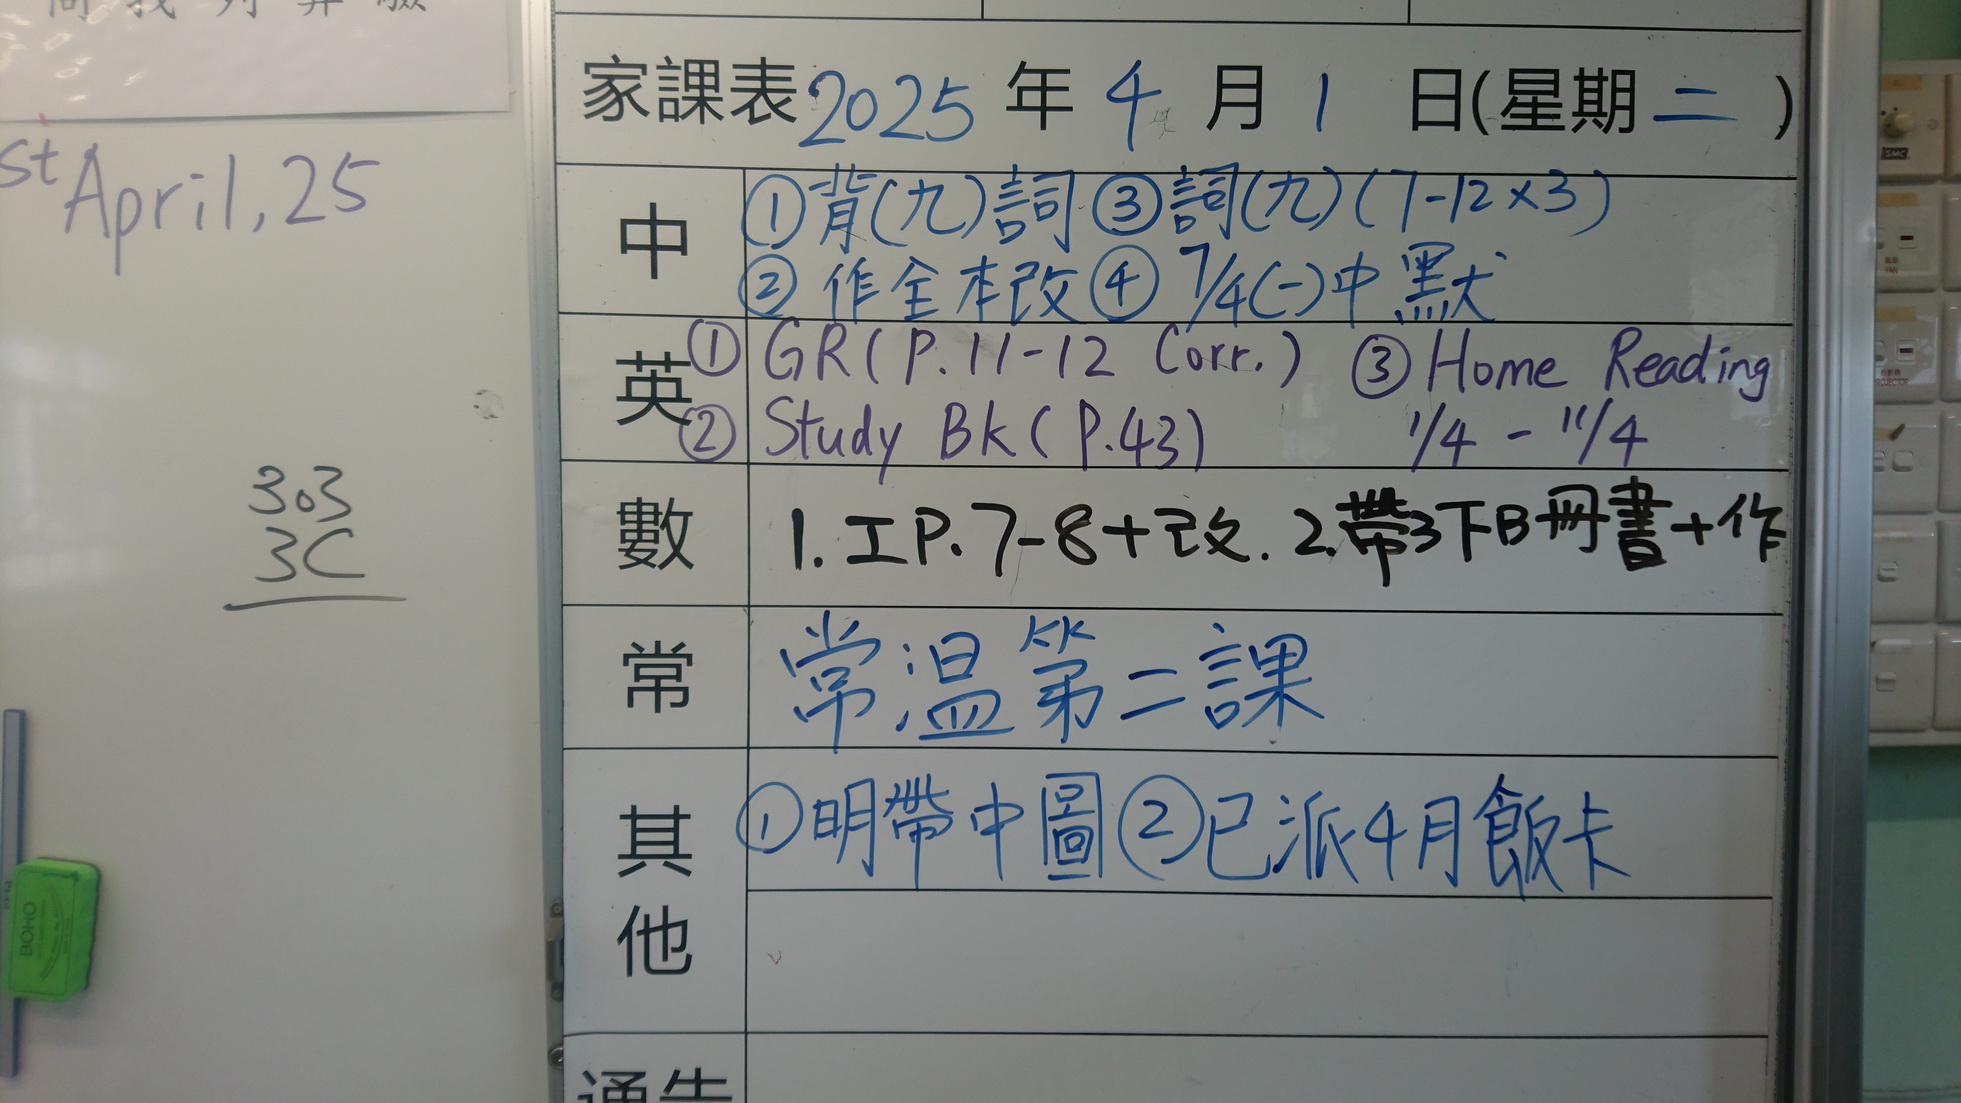 問 我 列 算 驗
st April, 25
303
3C
BOHO
家課表 2025 年 4 月 1 日(星期二)
中
①背(九)詞 ③詞(九)(7-12×3)
②作全本改 ④7/4(一)中默
英
①GR(P.11-12 Corr.) ③Home Reading
②Study BK(P.43) 1/4 - 11/4
數
1. 工P.7-8+改. 2.帶3下B冊書+作
常
常温第二課
其他
①明帶中圖 ②已派4月飯卡
通告
SMC